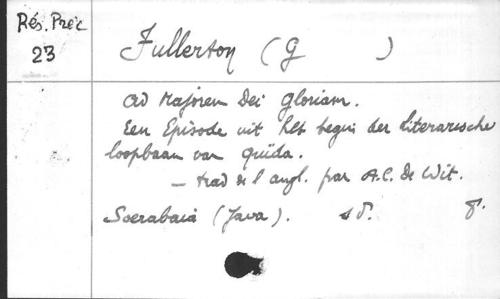 Rés. Préc
23
Fullerton (G )
Ad Majorem Dei Gloriam.
Een Episode uit het begin der literarische
loopbaan van Guïda.
— trad de l angl. par A.C. de Wit.
Soerabaia (Java). s d. 8.